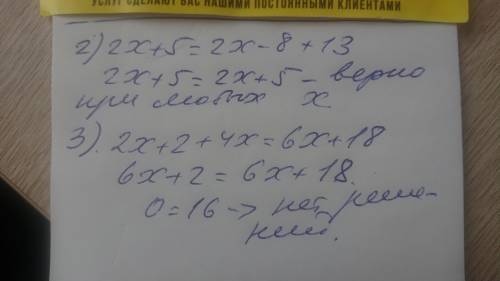 УСЛУГ СДЕЛАЮТ ВАС НАШИМИ ПОСТОЯННЫМИ КЛИЕНТАМИ
2) 2x+5=2x-8+13
2x+5=2x+5 - верно
при любых x
3). 2x+2+4x=6x+18
6x+2=6x+18.
0=16 → нет реше-
ний.